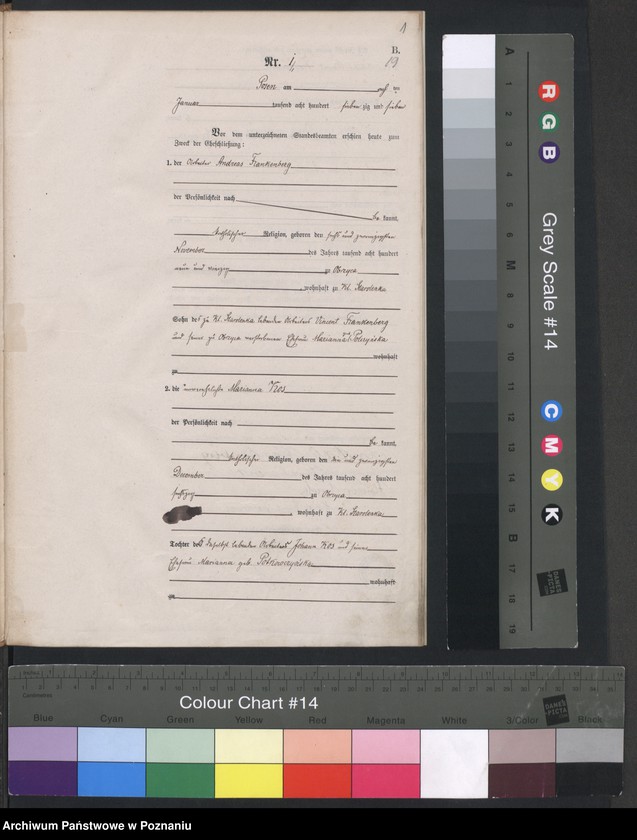 1
B.
Nr. 1
19
Posen am
Januar tausend acht hundert sieben zig und sieben
Vor dem unterzeichneten Standesbeamten erschien heute zum
Zweck der Eheschließung:
1. der Arbeiter Andreas Frankenberg
der Persönlichkeit nach
be kannt,
katholischer Religion, geboren den sechs und zwanzigsten
November des Jahres tausend acht hundert
neun und vierzig zu Obrzyco
, wohnhaft zu Kl. Starolenka
Sohn des zu Kl. Starolenka lebenden Arbeiters Vincent Frankenberg
und seiner zu Obrzyco verstorbenen Ehefrau Marianna
wohnhaft
zu
2. die unverehelichte Marianna Kos
der Persönlichkeit nach
be kannt,
katholischer Religion, geboren den und zwanzigsten
December des Jahres tausend acht hundert
fünfzig zu Obrzyco
, wohnhaft zu Kl. Starolenka
Tochter des daselbst lebenden Arbeiters Johann Kos und seiner
Ehefrau Marianna geb.
wohnhaft
zu
A 1 2 3 4 5 6 M 8 9 10 11 12 13 14 15 B 17 18 19
R G B
Grey Scale #14
C M Y K
DANES
PICTA
Inches
Centimetres
Colour Chart #14
DANES
PICTA
Blue Cyan Green Yellow Red Magenta White 3/Color Black
Archiwum Państwowe w Poznaniu